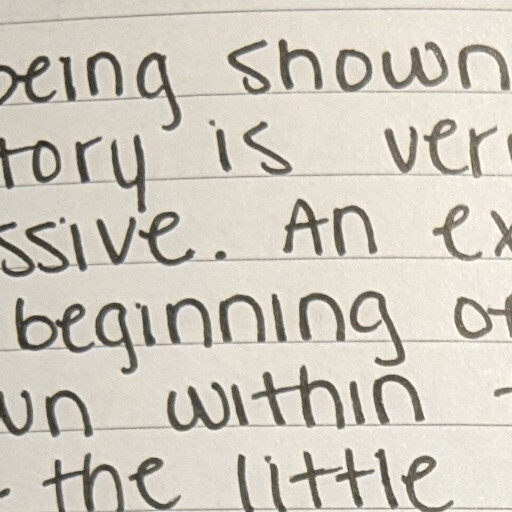 being shown
tory is ver
ssive. An ex
beginning of
un within
the little